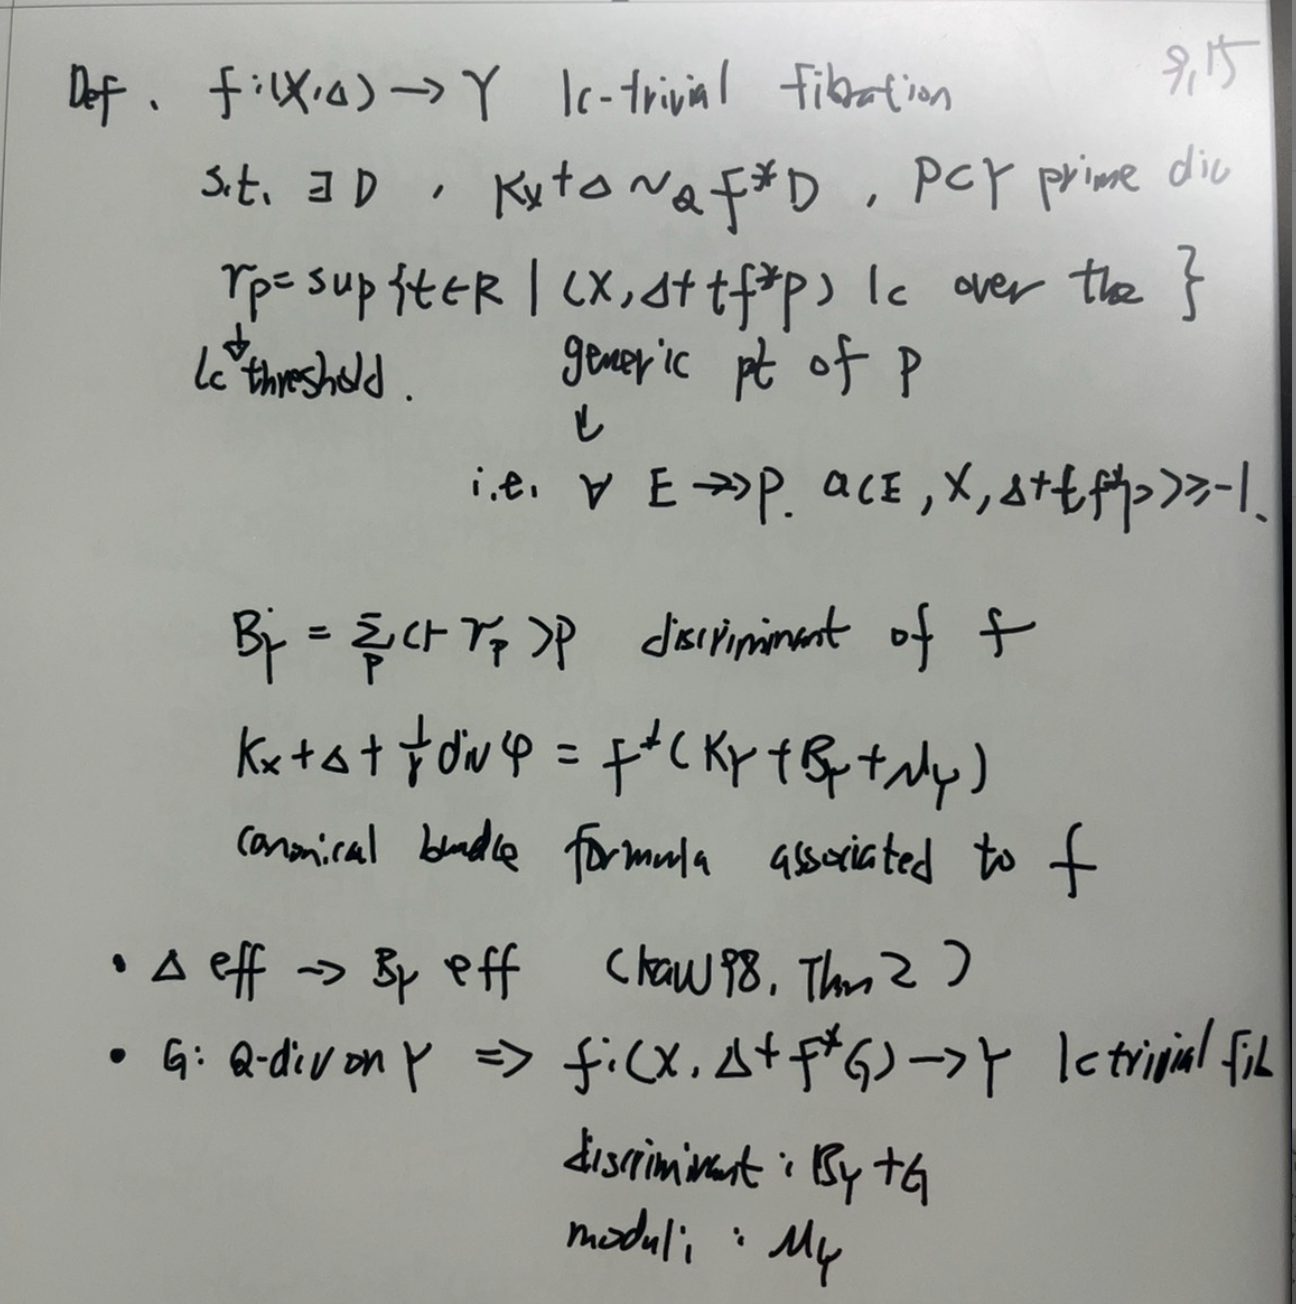 Def. f:(X,Δ) → Y lc-trivial fibration 9,15
s.t. ∃ D , Kx+Δ ~Q f*D , P⊂Y prime div
rp = sup{t∈R | (X, Δ+tf*p) lc over the }
lc threshold. generic pt of P
↓
i.e. ∀ E ↠ P. a(E, X, Δ+tf*p) ≥ -1.
BY = Σp (1-rp)P discriminant of f
Kx+Δ+1/r div φ = f*(KY+BY+MY)
canonical bundle formula associated to f
• Δ eff → BY eff (Kaw98, Thm 2)
• G: Q-div on Y ⇒ f:(X, Δ+f*G) → Y lc trivial fib
discriminant : BY+G
moduli : MY